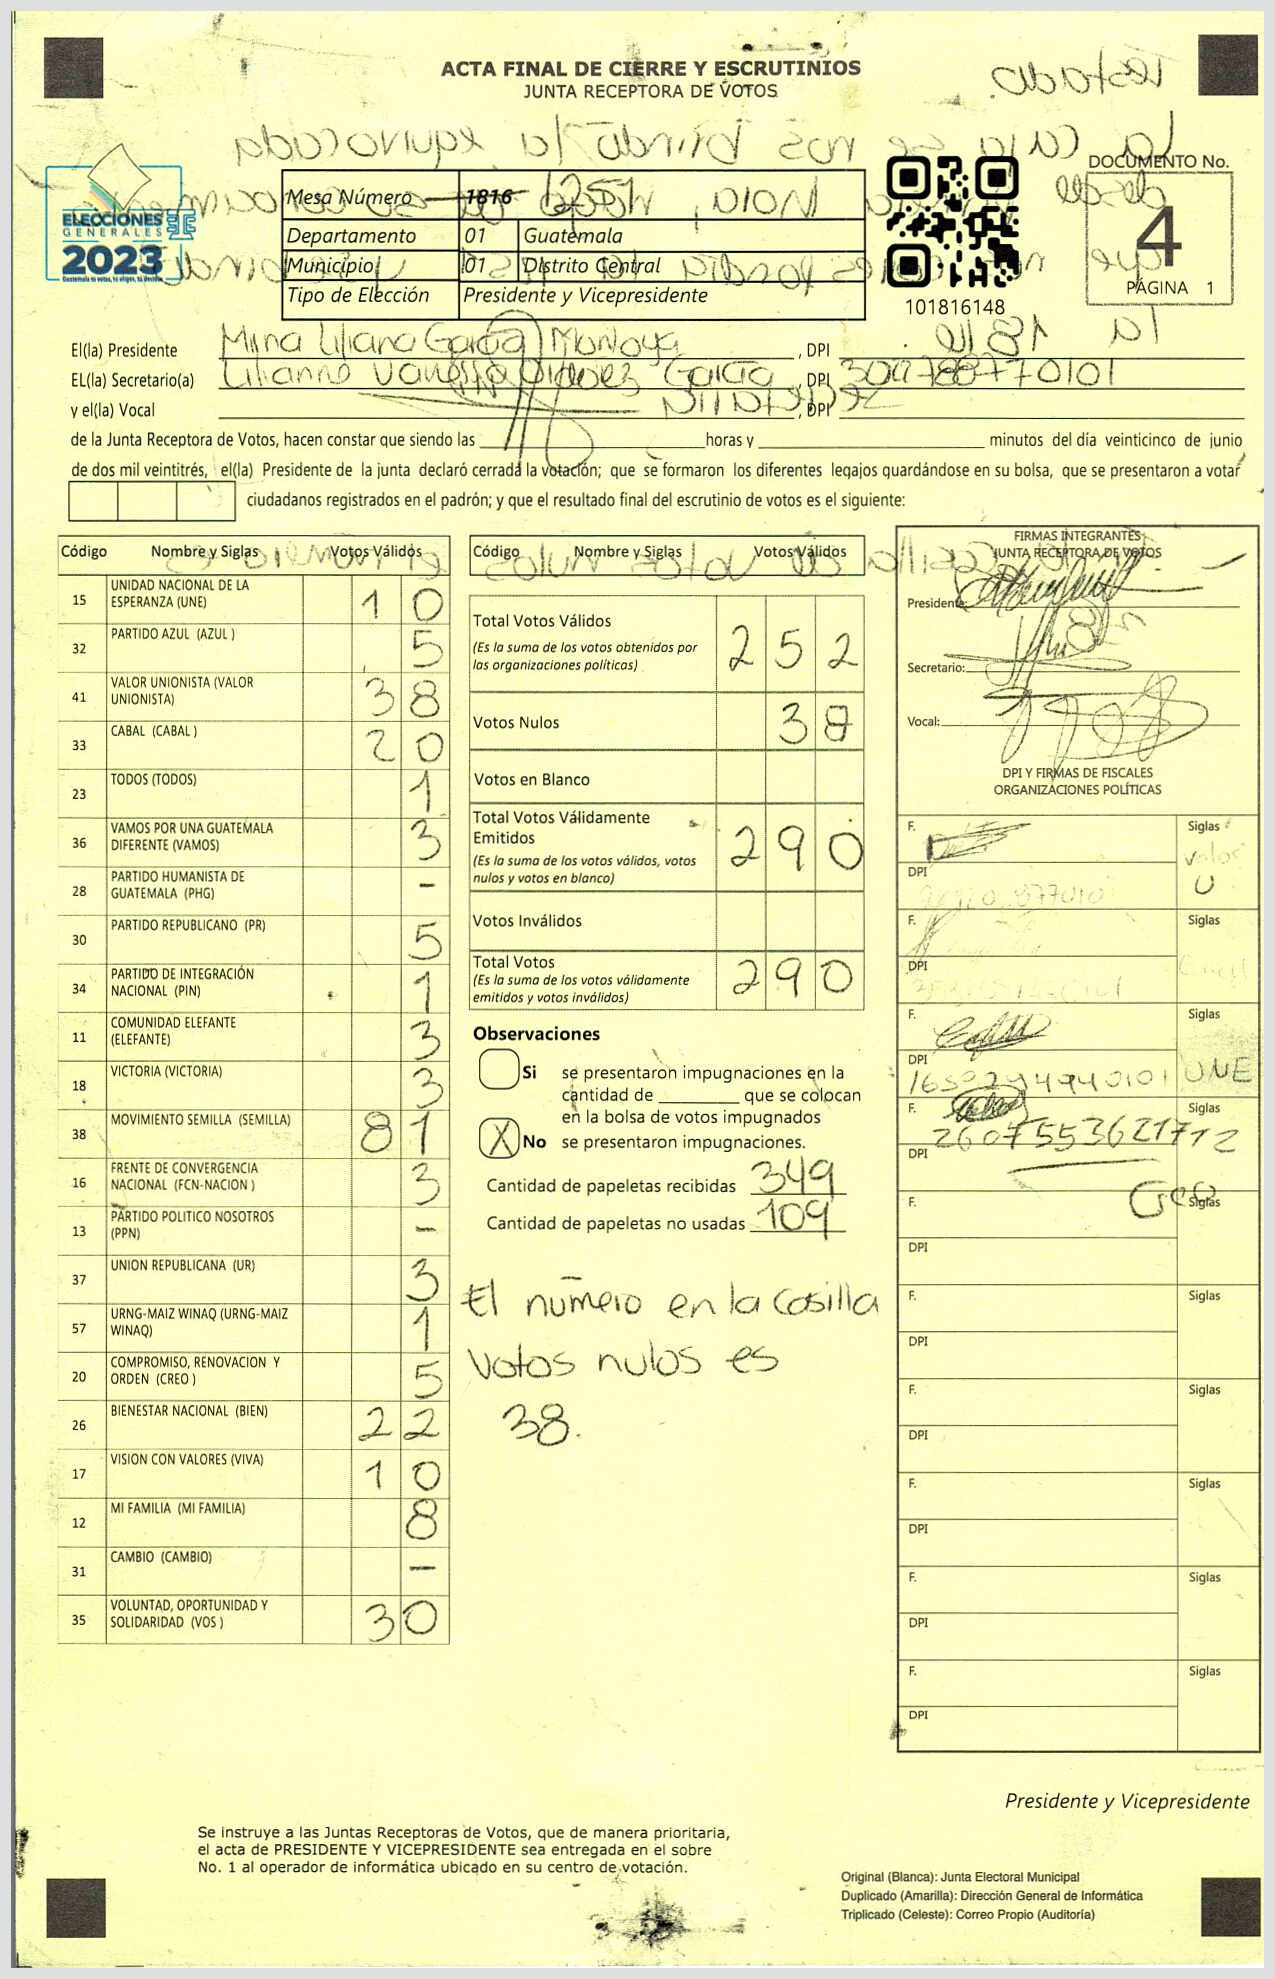 ACTA FINAL DE CIERRE Y ESCRUTINIOS
JUNTA RECEPTORA DE VOTOS
ELECCIONES
GENERALES
2023
Mesa Número 1816
Departamento 01 Guatemala
Municipio 01 Distrito Central
Tipo de Elección Presidente y Vicepresidente
101816148
DOCUMENTO No.
4
PÁGINA 1
El(la) Presidente Liliana García Montoya , DPI
EL(la) Secretario(a) Vanessa García , DPI
y el(la) Vocal , DPI
de la Junta Receptora de Votos, hacen constar que siendo las horas y minutos del día veinticinco de junio
de dos mil veintitrés, el(la) Presidente de la junta declaró cerrada la votación; que se formaron los diferentes legajos guardándose en su bolsa, que se presentaron a votar
ciudadanos registrados en el padrón; y que el resultado final del escrutinio de votos es el siguiente:
Código Nombre y Siglas Votos Válidos
15 UNIDAD NACIONAL DE LA ESPERANZA (UNE) 10
32 PARTIDO AZUL (AZUL ) 5
41 VALOR UNIONISTA (VALOR UNIONISTA) 38
33 CABAL (CABAL ) 20
23 TODOS (TODOS) 1
36 VAMOS POR UNA GUATEMALA DIFERENTE (VAMOS) 3
28 PARTIDO HUMANISTA DE GUATEMALA (PHG) -
30 PARTIDO REPUBLICANO (PR) 5
34 PARTIDO DE INTEGRACIÓN NACIONAL (PIN) 1
11 COMUNIDAD ELEFANTE (ELEFANTE) 3
18 VICTORIA (VICTORIA) 3
38 MOVIMIENTO SEMILLA (SEMILLA) 81
16 FRENTE DE CONVERGENCIA NACIONAL (FCN-NACION ) 3
13 PARTIDO POLITICO NOSOTROS (PPN) -
37 UNION REPUBLICANA (UR) 3
57 URNG-MAIZ WINAQ (URNG-MAIZ WINAQ) 1
20 COMPROMISO, RENOVACION Y ORDEN (CREO ) 5
26 BIENESTAR NACIONAL (BIEN) 22
17 VISION CON VALORES (VIVA) 10
12 MI FAMILIA (MI FAMILIA) 8
31 CAMBIO (CAMBIO) -
35 VOLUNTAD, OPORTUNIDAD Y SOLIDARIDAD (VOS ) 30
Código Nombre y Siglas Votos Válidos
Total Votos Válidos 252
(Es la suma de los votos obtenidos por
las organizaciones políticas)
Votos Nulos 38
Votos en Blanco
Total Votos Válidamente
Emitidos 290
(Es la suma de los votos válidos, votos
nulos y votos en blanco)
Votos Inválidos
Total Votos 290
(Es la suma de los votos válidamente
emitidos y votos inválidos)
Observaciones
Si se presentaron impugnaciones en la
cantidad de que se colocan
en la bolsa de votos impugnados
X No se presentaron impugnaciones.
Cantidad de papeletas recibidas 349
Cantidad de papeletas no usadas 109
El número en la casilla
votos nulos es
38.
FIRMAS INTEGRANTES
JUNTA RECEPTORA DE VOTOS
Presidente:
Secretario:
Vocal:
DPI Y FIRMAS DE FISCALES
ORGANIZACIONES POLÍTICAS
F. Siglas
valor
U
DPI
F. Siglas
DPI
F. Siglas
DPI UNE
F. Siglas
DPI
F. Siglas
DPI
F. Siglas
DPI
F. Siglas
DPI
F. Siglas
DPI
F. Siglas
DPI
F. Siglas
DPI
Presidente y Vicepresidente
Se instruye a las Juntas Receptoras de Votos, que de manera prioritaria,
el acta de PRESIDENTE Y VICEPRESIDENTE sea entregada en el sobre
No. 1 al operador de informática ubicado en su centro de votación.
Original (Blanca): Junta Electoral Municipal
Duplicado (Amarilla): Dirección General de Informática
Triplicado (Celeste): Correo Propio (Auditoría)